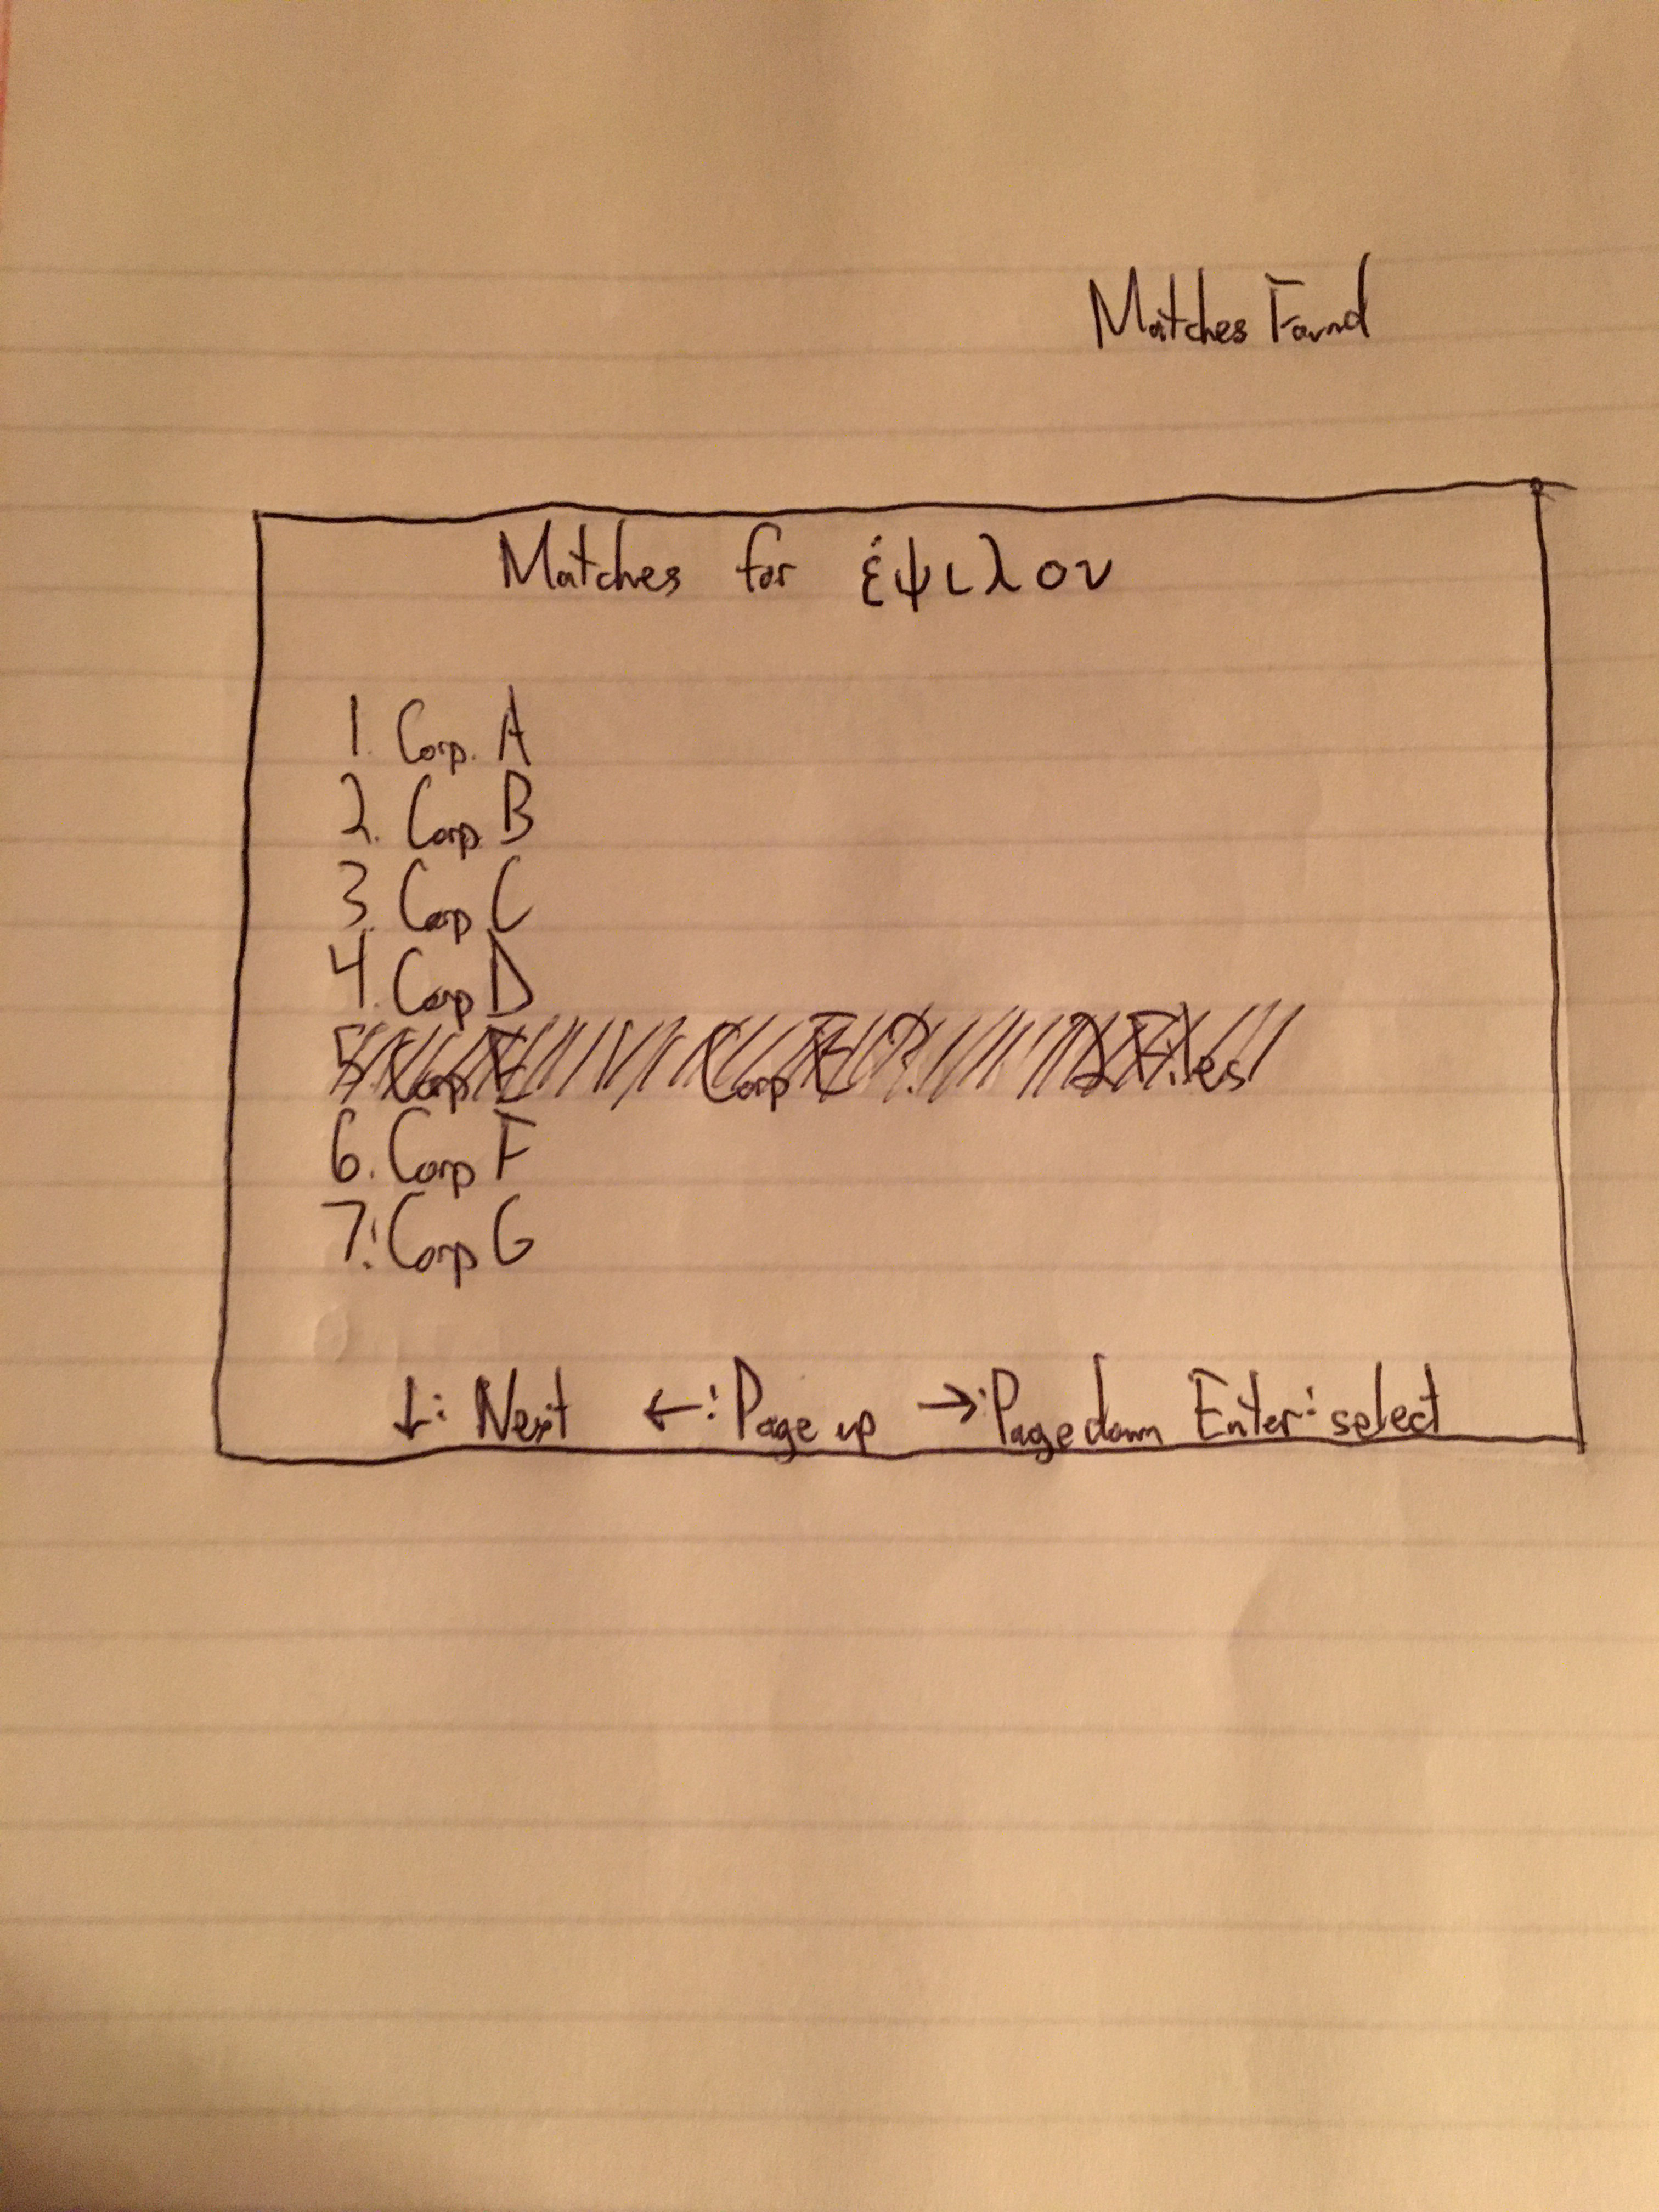 Matches Found
Matches for έψιλον
1. Corp. A
2. Corp. B
3. Corp C
4. Corp D
5. Corp E Corp E ? 2 Files
6. Corp F
7. Corp G
↓: Next ←: Page up →: Page down Enter: select